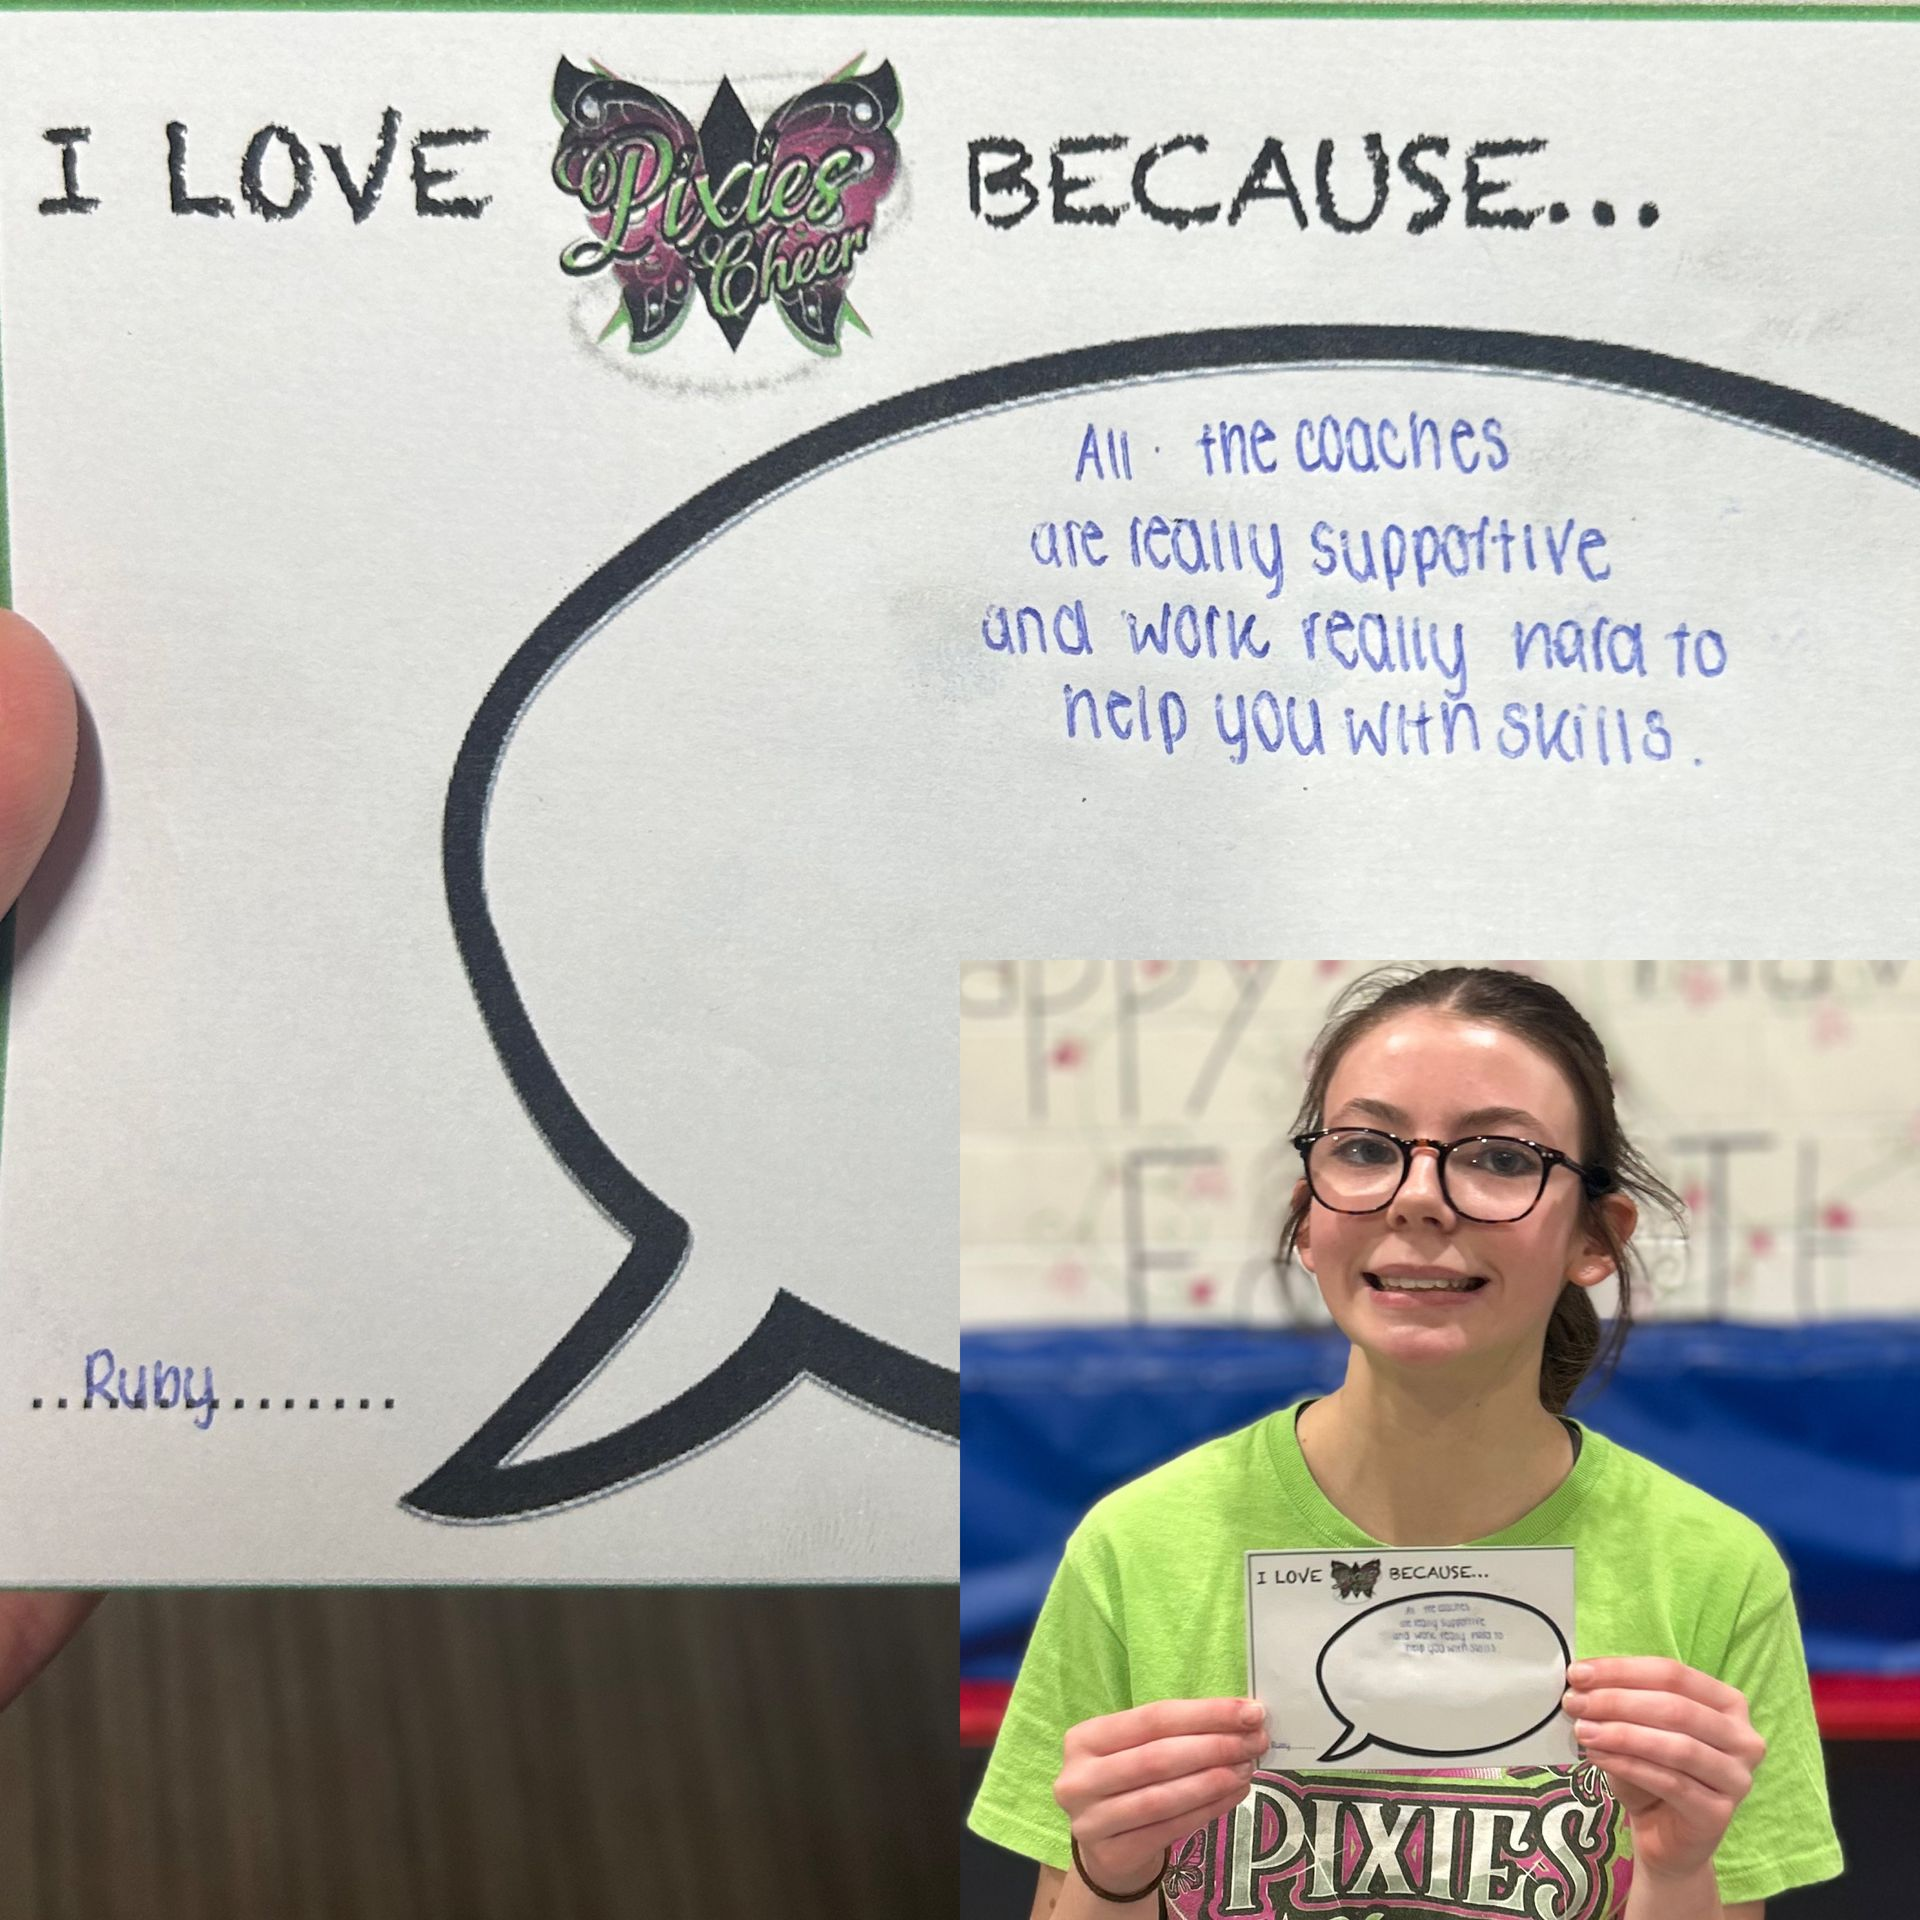 I LOVE Pixies Cheer BECAUSE...
All the coaches
are really supportive
and work really hard to
help you with skills.
..Ruby........
appy
F
I LOVE BECAUSE...
All the coaches
are really supportive
and work really hard to
help you with skills.
Ruby........
PIXIES